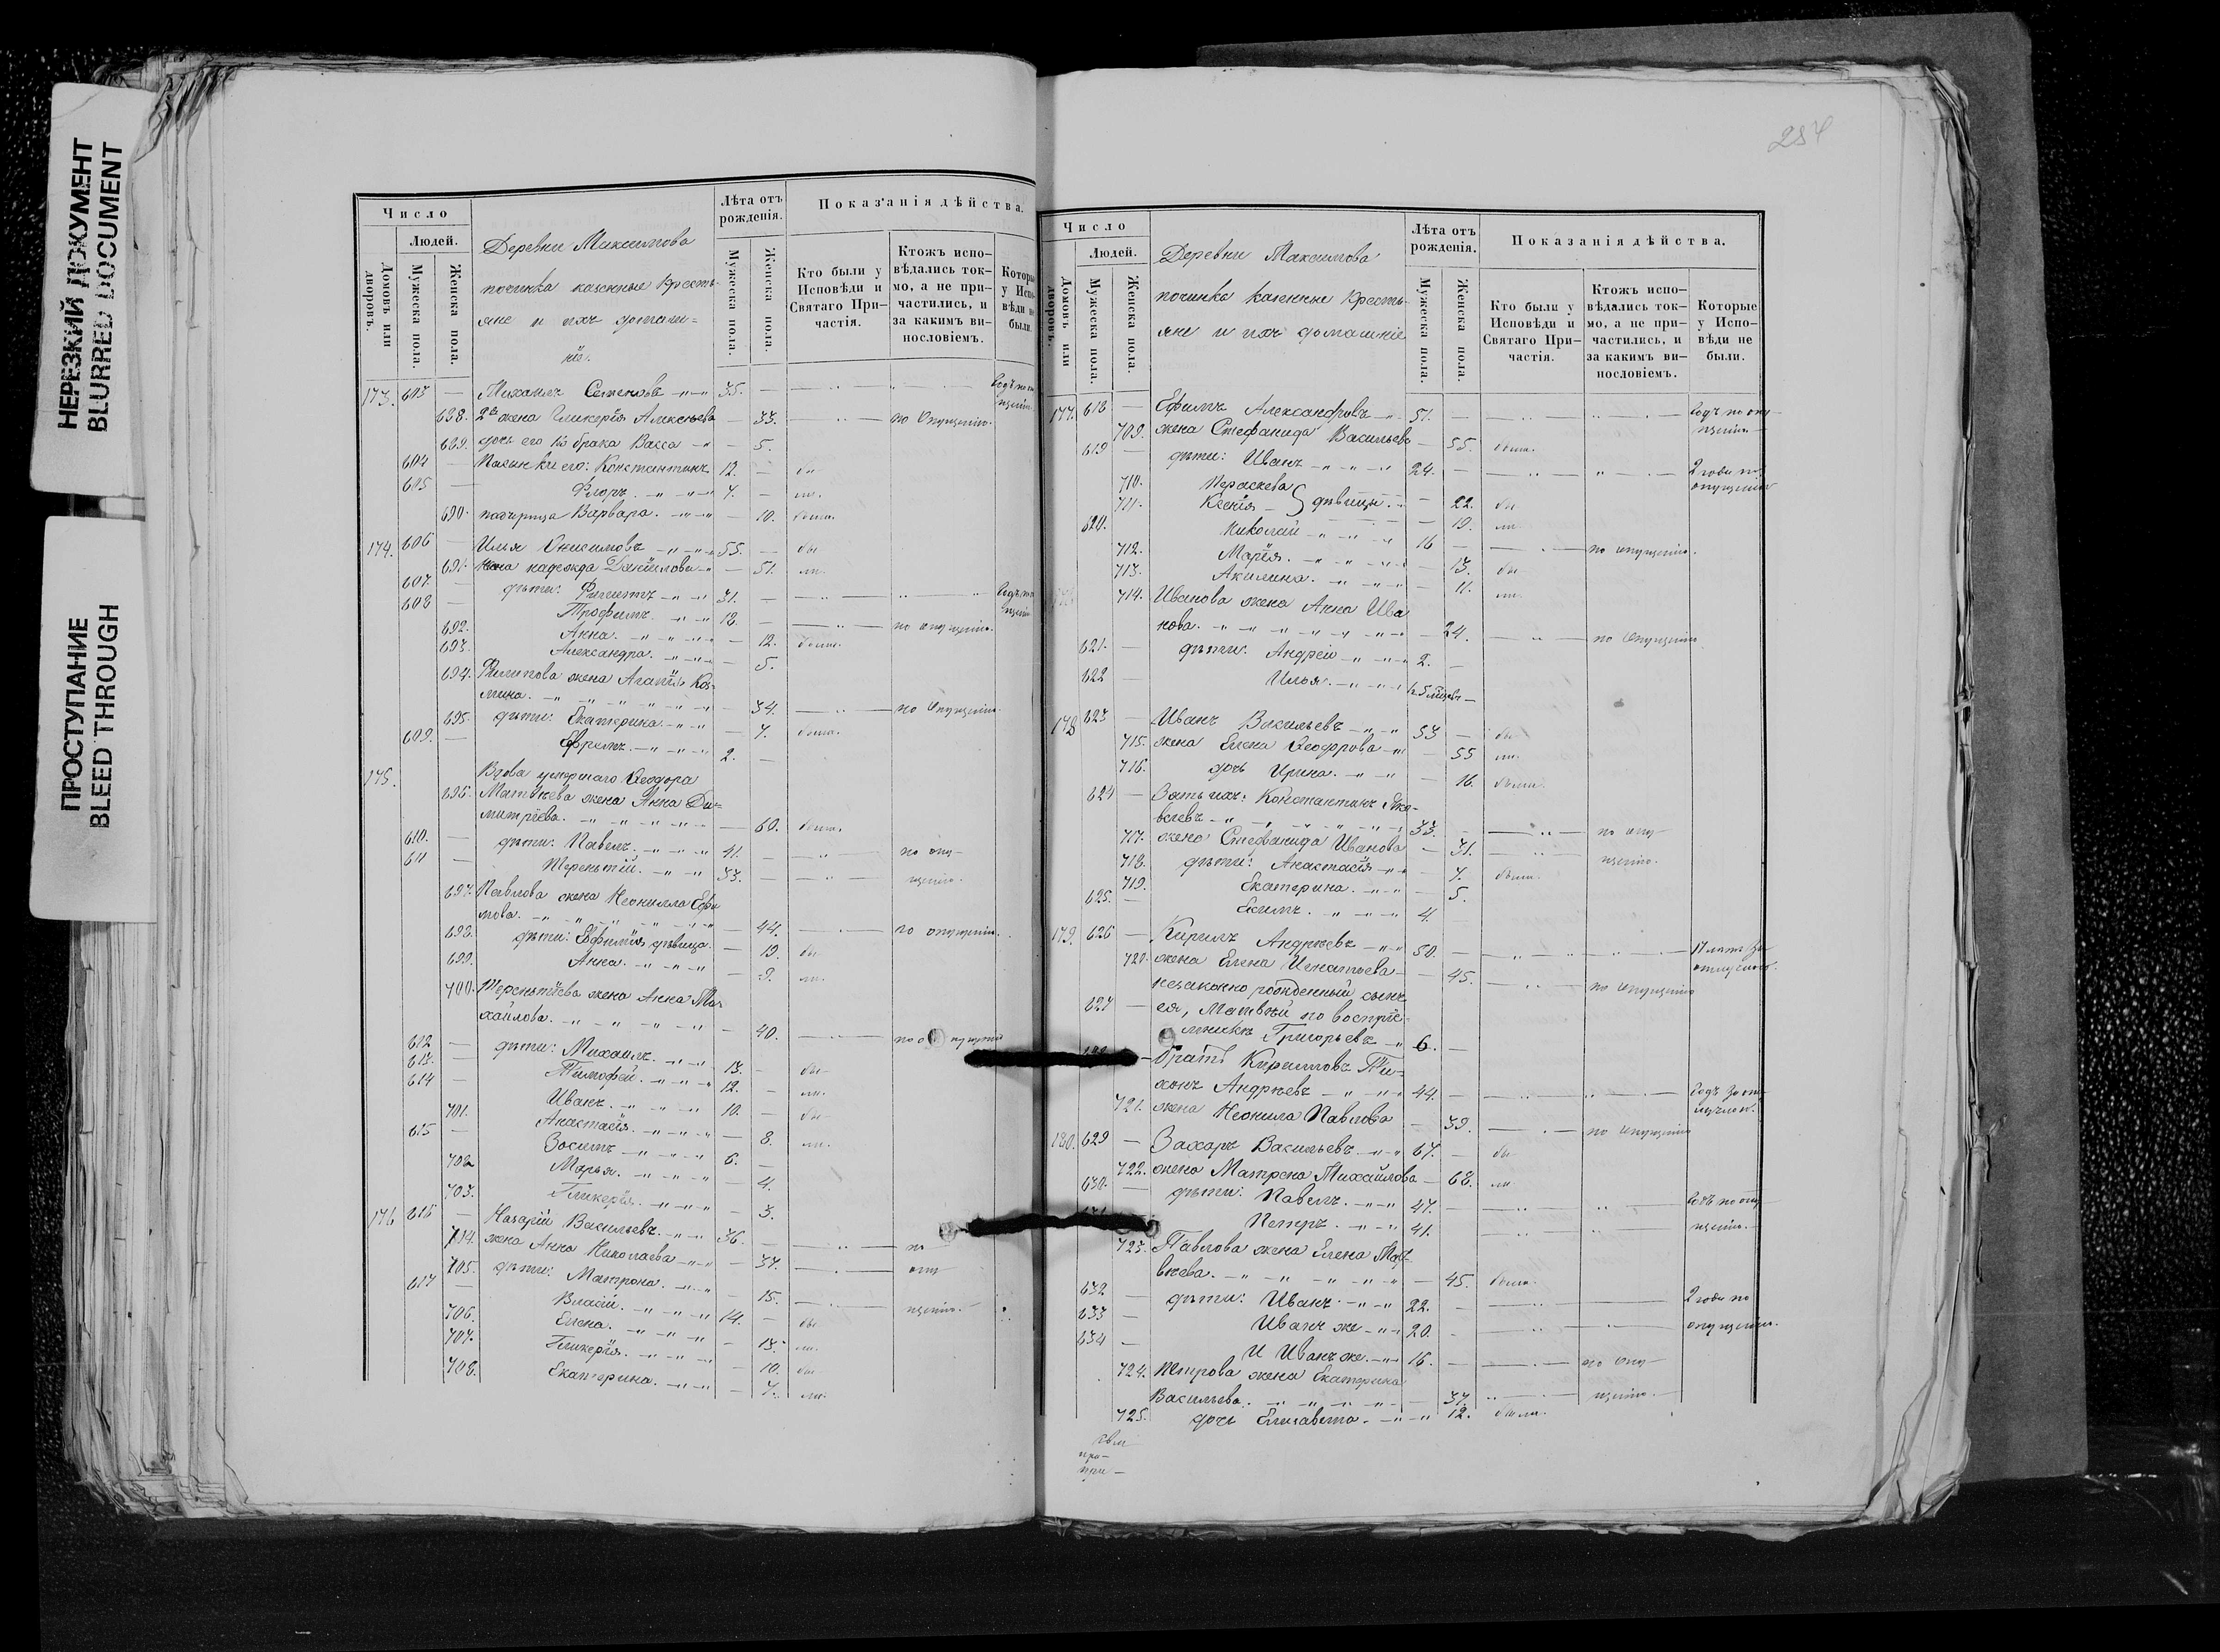 НЕРЕЗКИЙ ДОКУМЕНТ
BLURRED DOCUMENT
ПРОСТУПАНИЕ
BLEED THROUGH
Число
Людей.
Домовъ или дворовъ.
Мужеска пола.
Женска пола.
Деревни Максимова
починка казенные Кресть-
яне и ихъ домаш-
ніе.
Лѣта отъ рожденія.
Мужеска пола.
Женска пола.
Показанія дѣйства.
Кто были у Исповѣди и Святаго При-частія.
Ктожъ испо-вѣдались ток-мо, а не при-частились, и за какимъ ви-нословіемъ.
Которые у Испо-вѣди не были.
173. 603 — Михаилъ Семеновъ 35. —
688. 2я жена Гликерія Алексѣева — 33. по опущенію.
689. дочь его 1го брака Васса — 5.
604 — Пасынки его: Константинъ 12. — бы
605 — Флоръ. 7. — ли.
690. падчерица Варвара. — 10. была.
174. 606 — Илья Онисимовъ 55. — бы
691. жена Надежда Даніилова — 51. ли.
607. — дѣти: Филиппъ 31. —
608 — Трофимъ. 18. — по опущенію.
692. Анна. — 12. была.
693. Александра. — 5.
694. Филипова жена Агапія Коз-
мина. — 34. по опущенію.
695. дѣти: Екатерина. — 7. была.
609. — Ефремъ. 2. —
175. Вдова умершаго Ѳеодора
696. Матвѣева жена Анна Ди-
митріева. — 60. была.
610. — дѣти: Павелъ. 41. — по опу-
611 — Терентій. 33. — щенію.
697. Павлова жена Неонилла Ефи
мова. — 44. по опущенію.
698. дѣти: Евфимія дѣвица. — 19. бы
699. Анна. — 9. ли.
700. Терентіева жена Анна Ми-
хайлова. — 40.
612 — дѣти: Михаилъ. 13. — бы
613. — Тимофей. 12. — ли.
614 — Иванъ. 10. — бы
701. Анастасія. — 8. ли.
615 — Зосимъ 6. —
702 Марья. — 4.
703. Гликерія. — 3.
176 616 — Назарій Васильевъ. 36. — по
704. жена Анна Николаева — 37. опу
705. дѣти: Матрона. — 15. щенію.
617 — Власій. 14. — бы
706. Елена. — 13. ли.
707. Гликерія. — 10. бы
708. Екатерина. — 7. ли.
254
Число
Людей.
Домовъ или дворовъ.
Мужеска пола.
Женска пола.
Деревни Максимова
починка казенные Кресть-
яне и ихъ домашніе
Лѣта отъ рожденія.
Мужеска пола.
Женска пола.
Показанія дѣйства.
Кто были у Исповѣди и Святаго При-частія.
Ктожъ испо-вѣдались ток-мо, а не при-частились, и за какимъ ви-нословіемъ.
Которые у Испо-вѣди не были.
177. 618 — Ефимъ Александровъ 51. — годъ по опу-
щенію
709. жена Стефанида Васильева — 55. была.
619 — дѣти: Иванъ 24. — 2 года по
опущенію
710. Параскева
711. Ксенія } дѣвицы. — 22. бы
— 19. ли.
620. Николай 16 — по опущенію.
712. Марія. — 13. бы
713. Акилина. — 11. ли.
714. Иванова жена Анна Ива
нова. — 24. по опущенію
621. — дѣти: Андрей 2. —
622 — Илья.
178 623 — Иванъ Васильевъ 53 — бы
715. жена Елена Ѳеодорова — 55 ли.
716. дочь Ирина. — 16. была.
624 — Зять ихъ: Константинъ Яко-
влевъ 33. — по опу-
717. жена Стефанида Иванова — 31. щенію.
718. дѣти: Анастасія — 7. была.
719. Екатерина. — 5.
625. — Екимъ. 4. —
179. 626 — Кирилъ Андреевъ 50. —
720. жена Елена Игнатьева — 45. по опущенію
незаконно рожденный сынъ
627 — ея, Матвѣй по воспріе-
мнику Григорьевъ 6. —
братъ Кирилловъ Ти-
хонъ Андреевъ 44. —
721. жена Неонила Павлова — 39. по опущенію
180. 629 — Захаръ Васильевъ. 67. — бы
722. жена Матрона Михайлова — 68. ли
630. — дѣти: Павелъ. 47. — годъ по опу
Петръ. 41. — щенію.
723. Павлова жена Елена Мат-
вѣева. — 45. была.
632 — дѣти: Иванъ. 22. — 2 года по
633 — Иванъ же 20. — опущенію.
634 — И Иванъ же. 16. — по опу
724. Петрова жена Екатерина
Васильева. — 37. щенію.
725. дочь Елисавета. — 12. была.